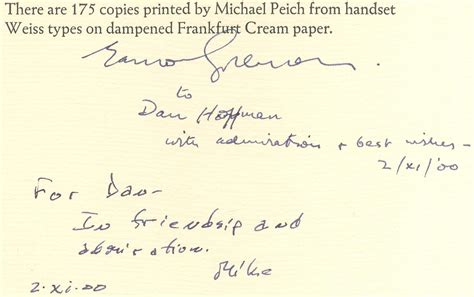 There are 175 copies printed by Michael Peich from handset
Weiss types on dampened Frankfurt Cream paper.
to
Dan Hoffman
with admiration + best wishes –
2/xi/'00
For Dan–
In friendship and
admiration.
Mike
2.xi.00